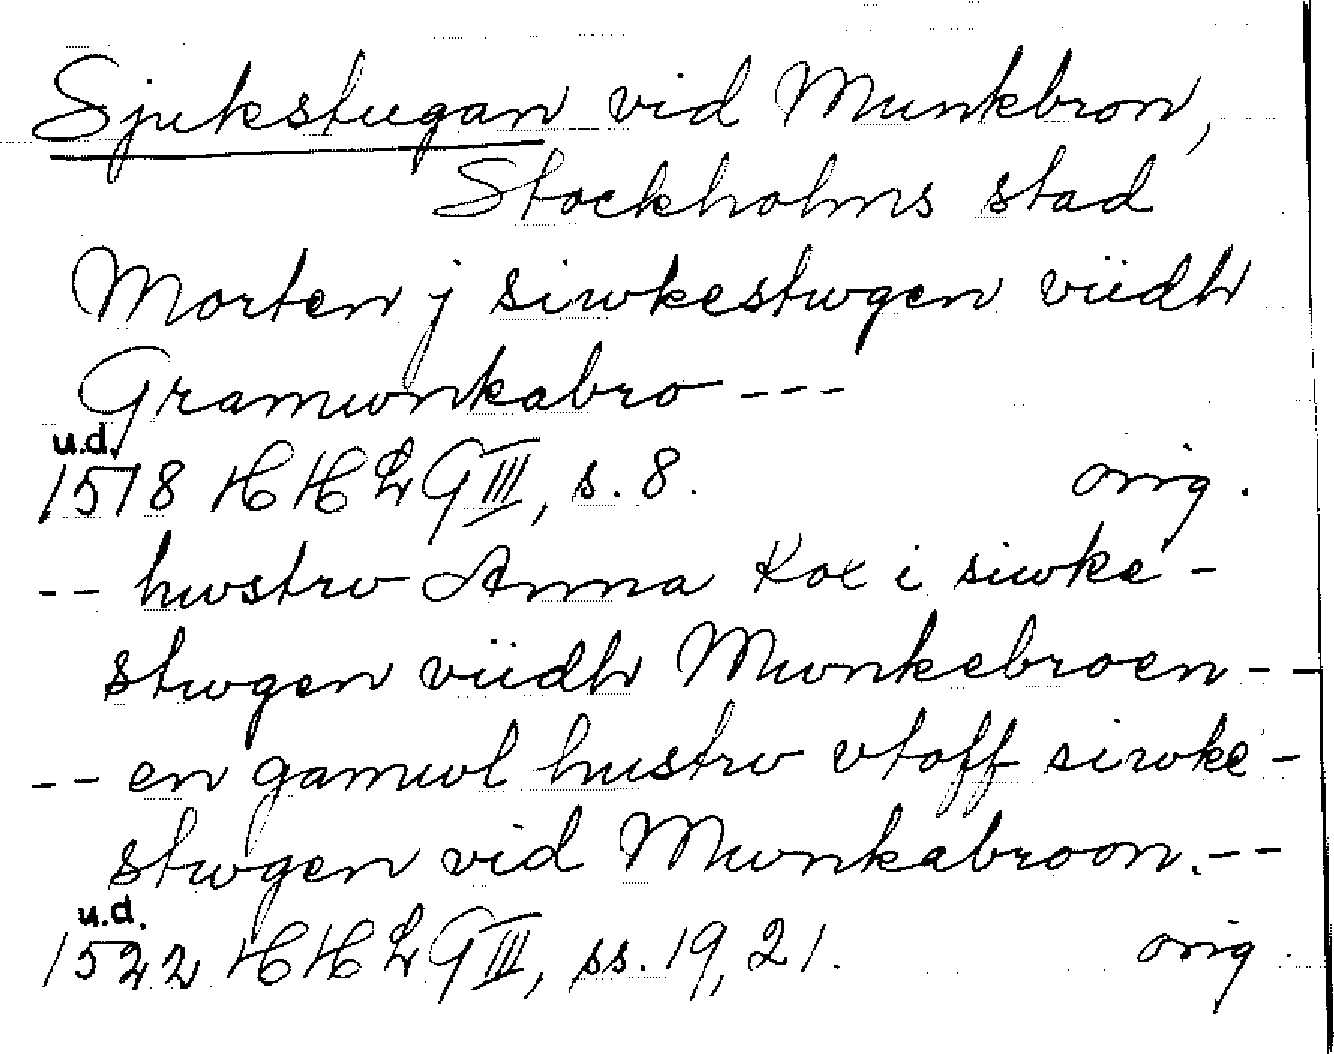 Sjukstugan vid Munkbron,
Stockholms stad
Morten j siwkestwgen viidh
Gramwnkabro ---
u.d.
1518 HHLG III, s. 8. orig.
-- hwstrv Anna Kox i siwke-
stwgen viidh Mwnkebroen --
-- en gamwl hustrv vtoff siwke-
stwgen vid Mwnkabroon. --
u.d.
1522 HHLG III, ss. 19, 21. orig.